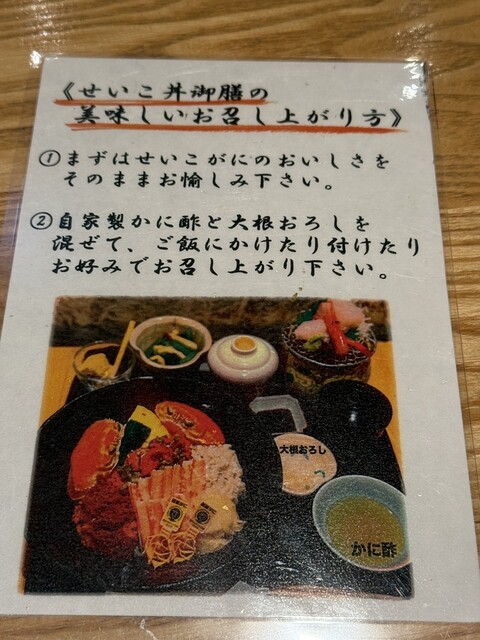 《せいこ丼御膳の
美味しいお召し上がり方》
①まずはせいこがにのおいしさを
そのままお愉しみ下さい。
②自家製かに酢と大根おろしを
混ぜて、ご飯にかけたり付けたり
お好みでお召し上がり下さい。
大根おろし
かに酢